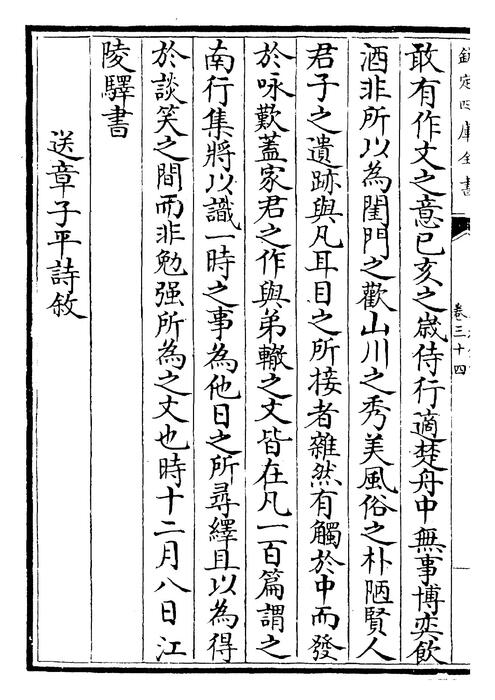 欽定四庫全書
卷三十四
敢有作文之意已亥之歲侍行適楚舟中無事博弈飲
酒非所以為閨門之歡山川之秀美風俗之朴陋賢人
君子之遺跡與凡耳目之所接者雜然有觸於中而發
於咏歎蓋家君之作與弟轍之文皆在凡一百篇謂之
南行集將以識一時之事為他日之所尋繹且以為得
於談笑之間而非勉强所為之文也時十二月八日江
陵驛書
送章子平詩敘